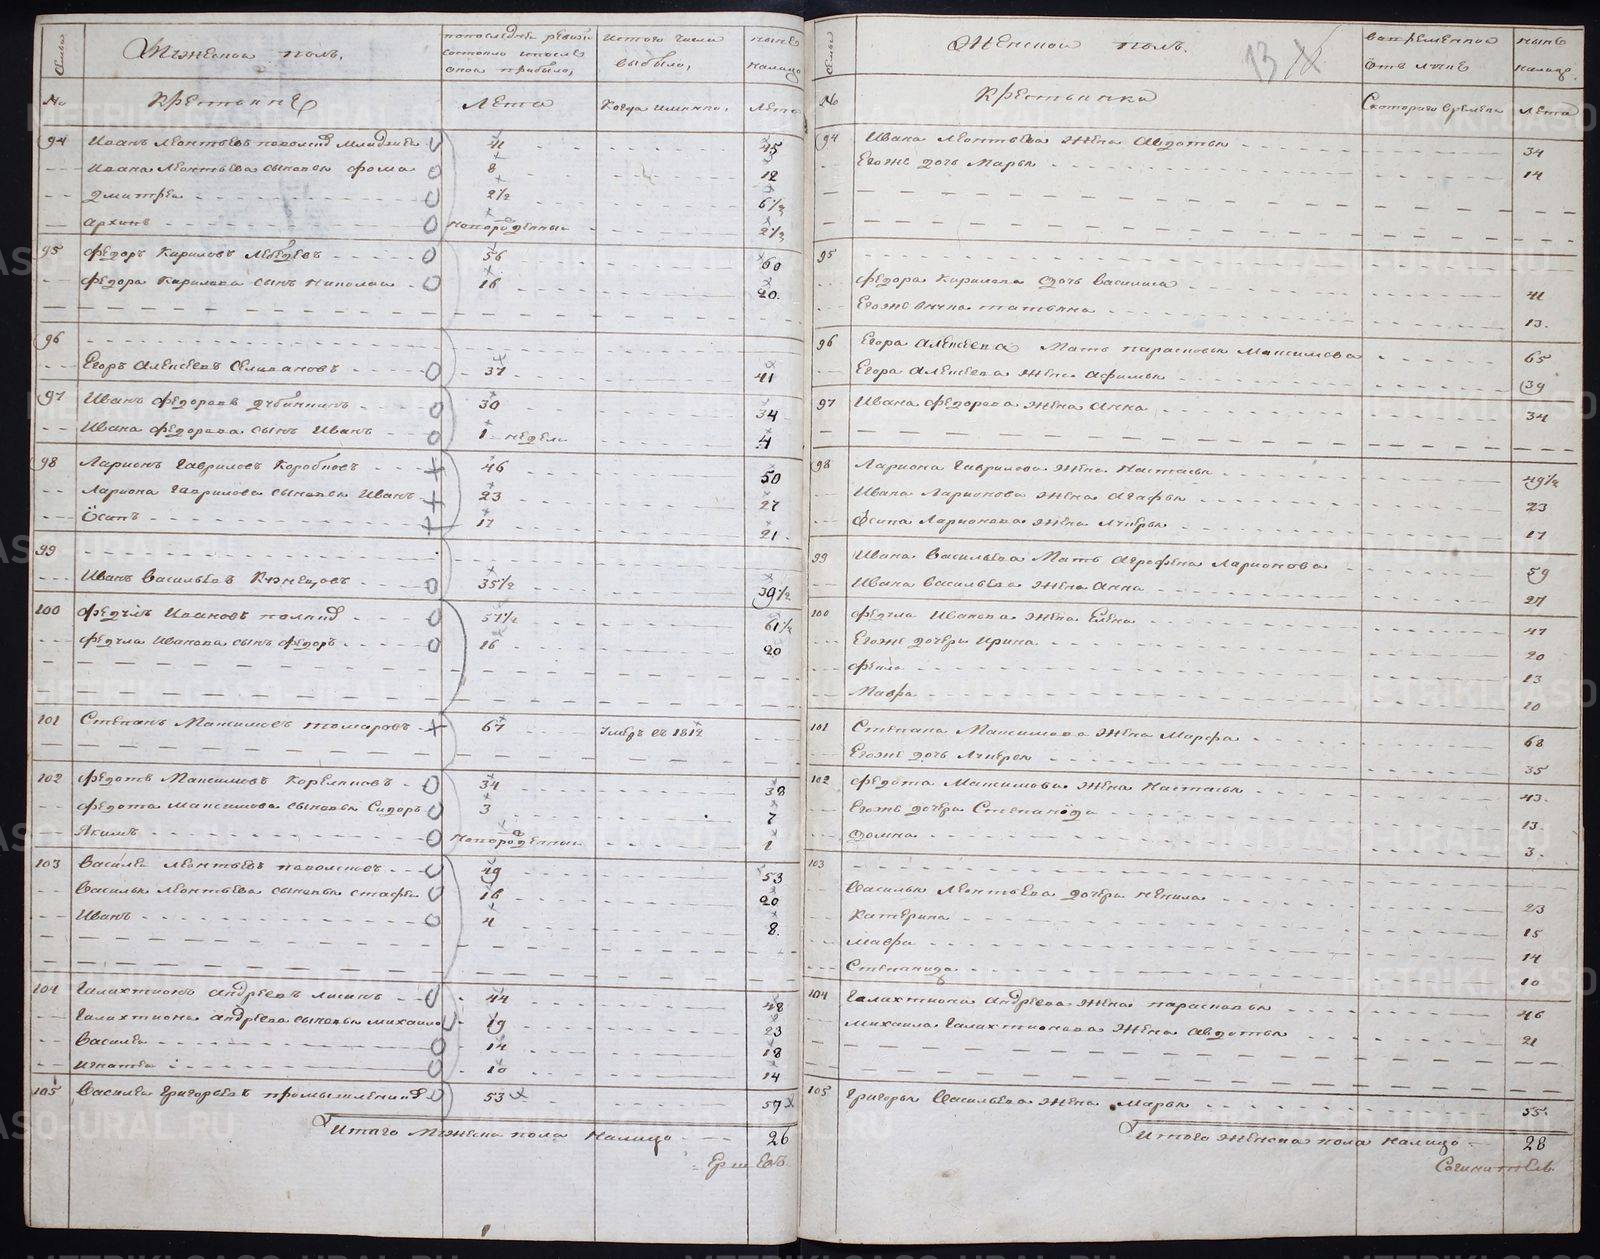 Семьи
Мужеской полъ.
По последней ревизіи состояло и после оной прибыло,
Изтого числа выбыло,
Ныне налицо
№
Крестьяне
Лета
Когда именно,
Лета
94 Иванъ Леонтьевъ Младшей 41 45
Ивана Леонтьева сыновья Фома 8 12
Дмитрей 2½ 6½
Архипъ новорожденный 2½
95 Федоръ Кириловъ Лебедевъ 56 60
Федора Кирилова сынъ Николай 16 20.
96
Егоръ Алексеевъ Селивановъ 37 41
97 Иванъ Федоровъ Дубининъ 30 34
Ивана Федорова сынъ Иванъ 1 недели 4
98 Ларионъ Гавриловъ Коробковъ 46 50
Лариона Гаврилова сыновья Иванъ 23 27
Осипъ 17 21.
99
Иванъ Васильевъ Кузнецовъ 35½ 39½
100 Федулъ Ивановъ 57½ 61½
Федула Иванова сынъ Федоръ 16 20
101 Степанъ Максимовъ Токаровъ 67 Умеръ въ 1812
102 Федотъ Максимовъ Корелинъ 34 38
Федота Максимова сыновья Сидоръ 3 7
Якимъ новорожденный 1
103 Василей Леонтьевъ 49 53
Василья Леонтьева сыновья Стафей 16 20
Иванъ 4 8.
104 Галахтионъ Андреевъ Лисинъ 44 48
Галахтиона Андреева сыновья Михайло 19 23
Василей 14 18
Игнатей 10 14
105 Василей Григорьевъ 53 57
Итого Мужеска пола налицо 26
Ершевъ.
Семьи
Женской полъ.
13
Во временной отлучке
Ныне налицо.
№
Крестьянка
Скотораго времяни
Лета
94 Ивана Леонтьева жена Авдотья 34
Егоже дочь Марья 14
95
Федора Кирилова дочь Василиса 41
Егоже внука Татьяна 13.
96 Егора Алексеева Мать Парасковья Максимова 65
Егора Алексеева жена Афимья 39
97 Ивана Федорова жена Анна 34
98 Лариона Гаврилова жена Настасья 49½
Ивана Ларионова жена Агафья 23
Осипа Ларионова жена Лукерья 17
99 Ивана Васильева Мать Аграфена Ларионова 59
Ивана Васильева жена Анна 27
100 Федула Иванова жена Елена 47
Егоже дочери Ирина 20
Фекла 13
Мавра 10
101 Степана Максимова жена Марфа 68
Егоже дочь Лукерья 35
102 Федота Максимова жена Настасья 43.
Егоже дочери Степанида 13
Домна 3.
103
Василья Леонтьева дочери Ненила 23
Катерина 15
Мавра 14
Степанида 10
104 Галахтиона Андреева жена Парасковья 46
Михаила Галахтионова жена Авдотья 21
105 Григорья Васильева жена Марья 55.
Итого женска пола налицо 28
Сочинитель.
METRIKI.GASO-URAL.RU